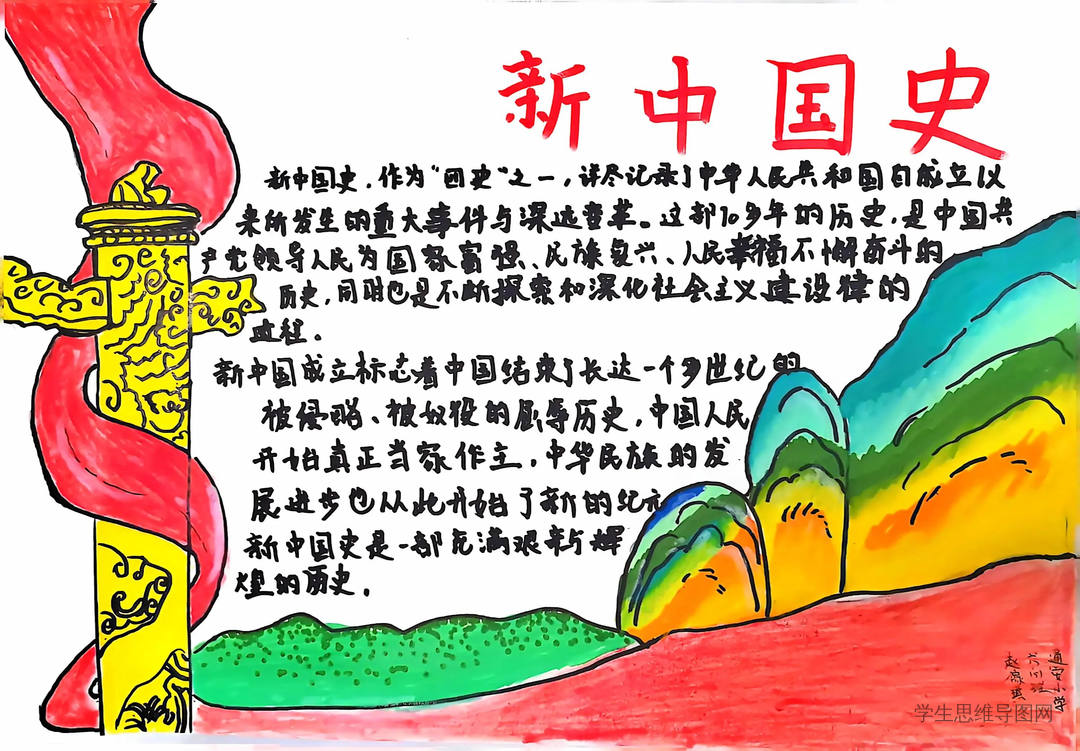 新中国史
新中国史,作为“四史”之一,详尽记录了中华人民共和国自成立以
来所发生的重大事件与深远变革。这部70多年的历史,是中国共
产党领导人民为国家富强、民族复兴、人民幸福不懈奋斗的
历史,同时也是不断探索和深化社会主义建设律的
进程。
新中国成立标志着中国结束了长达一个多世纪的
被侵略、被奴役的屈辱历史,中国人民
开始真正当家作主,中华民族的发
展进步也从此开始了新的纪元
新中国史是一部充满艰辛与辉
煌的历史。
学生思维导图网